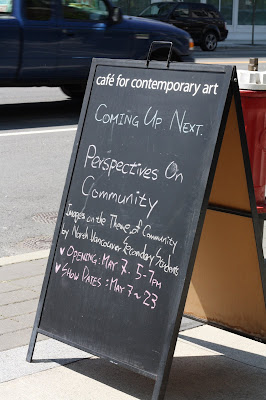 café for contemporary art
COMING UP NEXT.
Perspectives On
Community
Images on the Theme of Community
by North Vancouver Secondary Students
♥ OPENING: MAY 7. 5-7PM
♥ SHOW DATES: MAY 7~23